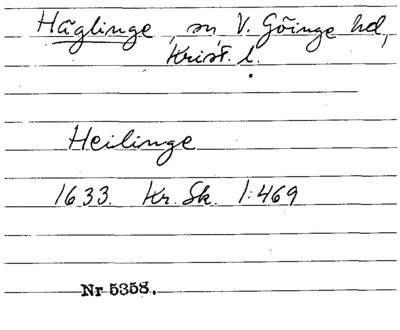 Häglinge, sn, V. Göinge hd,
Krist. l.
Heilinge
1633. Kr. Sk. 1:469
Nr 5358.